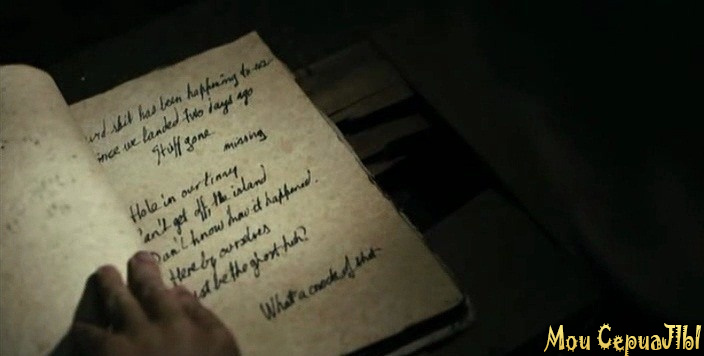 shit has been happening to us
since we landed two days ago
Stuff gone
missing
Hole in our
can't get off the island
Don't know how it happened.
Here by ourselves
be the ghost huh?
What a crock of shit
Мои СериаЛЫ